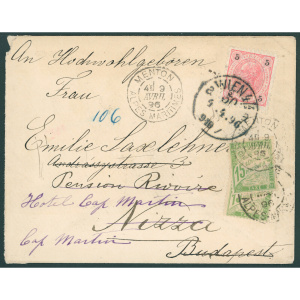 An Hochwohlgeboren
Frau
106
Emilie Saxlehner
Andrassystrasse 3
Pension Rivoire
Hotel Cap Martin
Nizza
Cap Martin
Budapest
MENTON
9
AVRIL
96
ALPES MARITIMES
WIEN
5
5
15